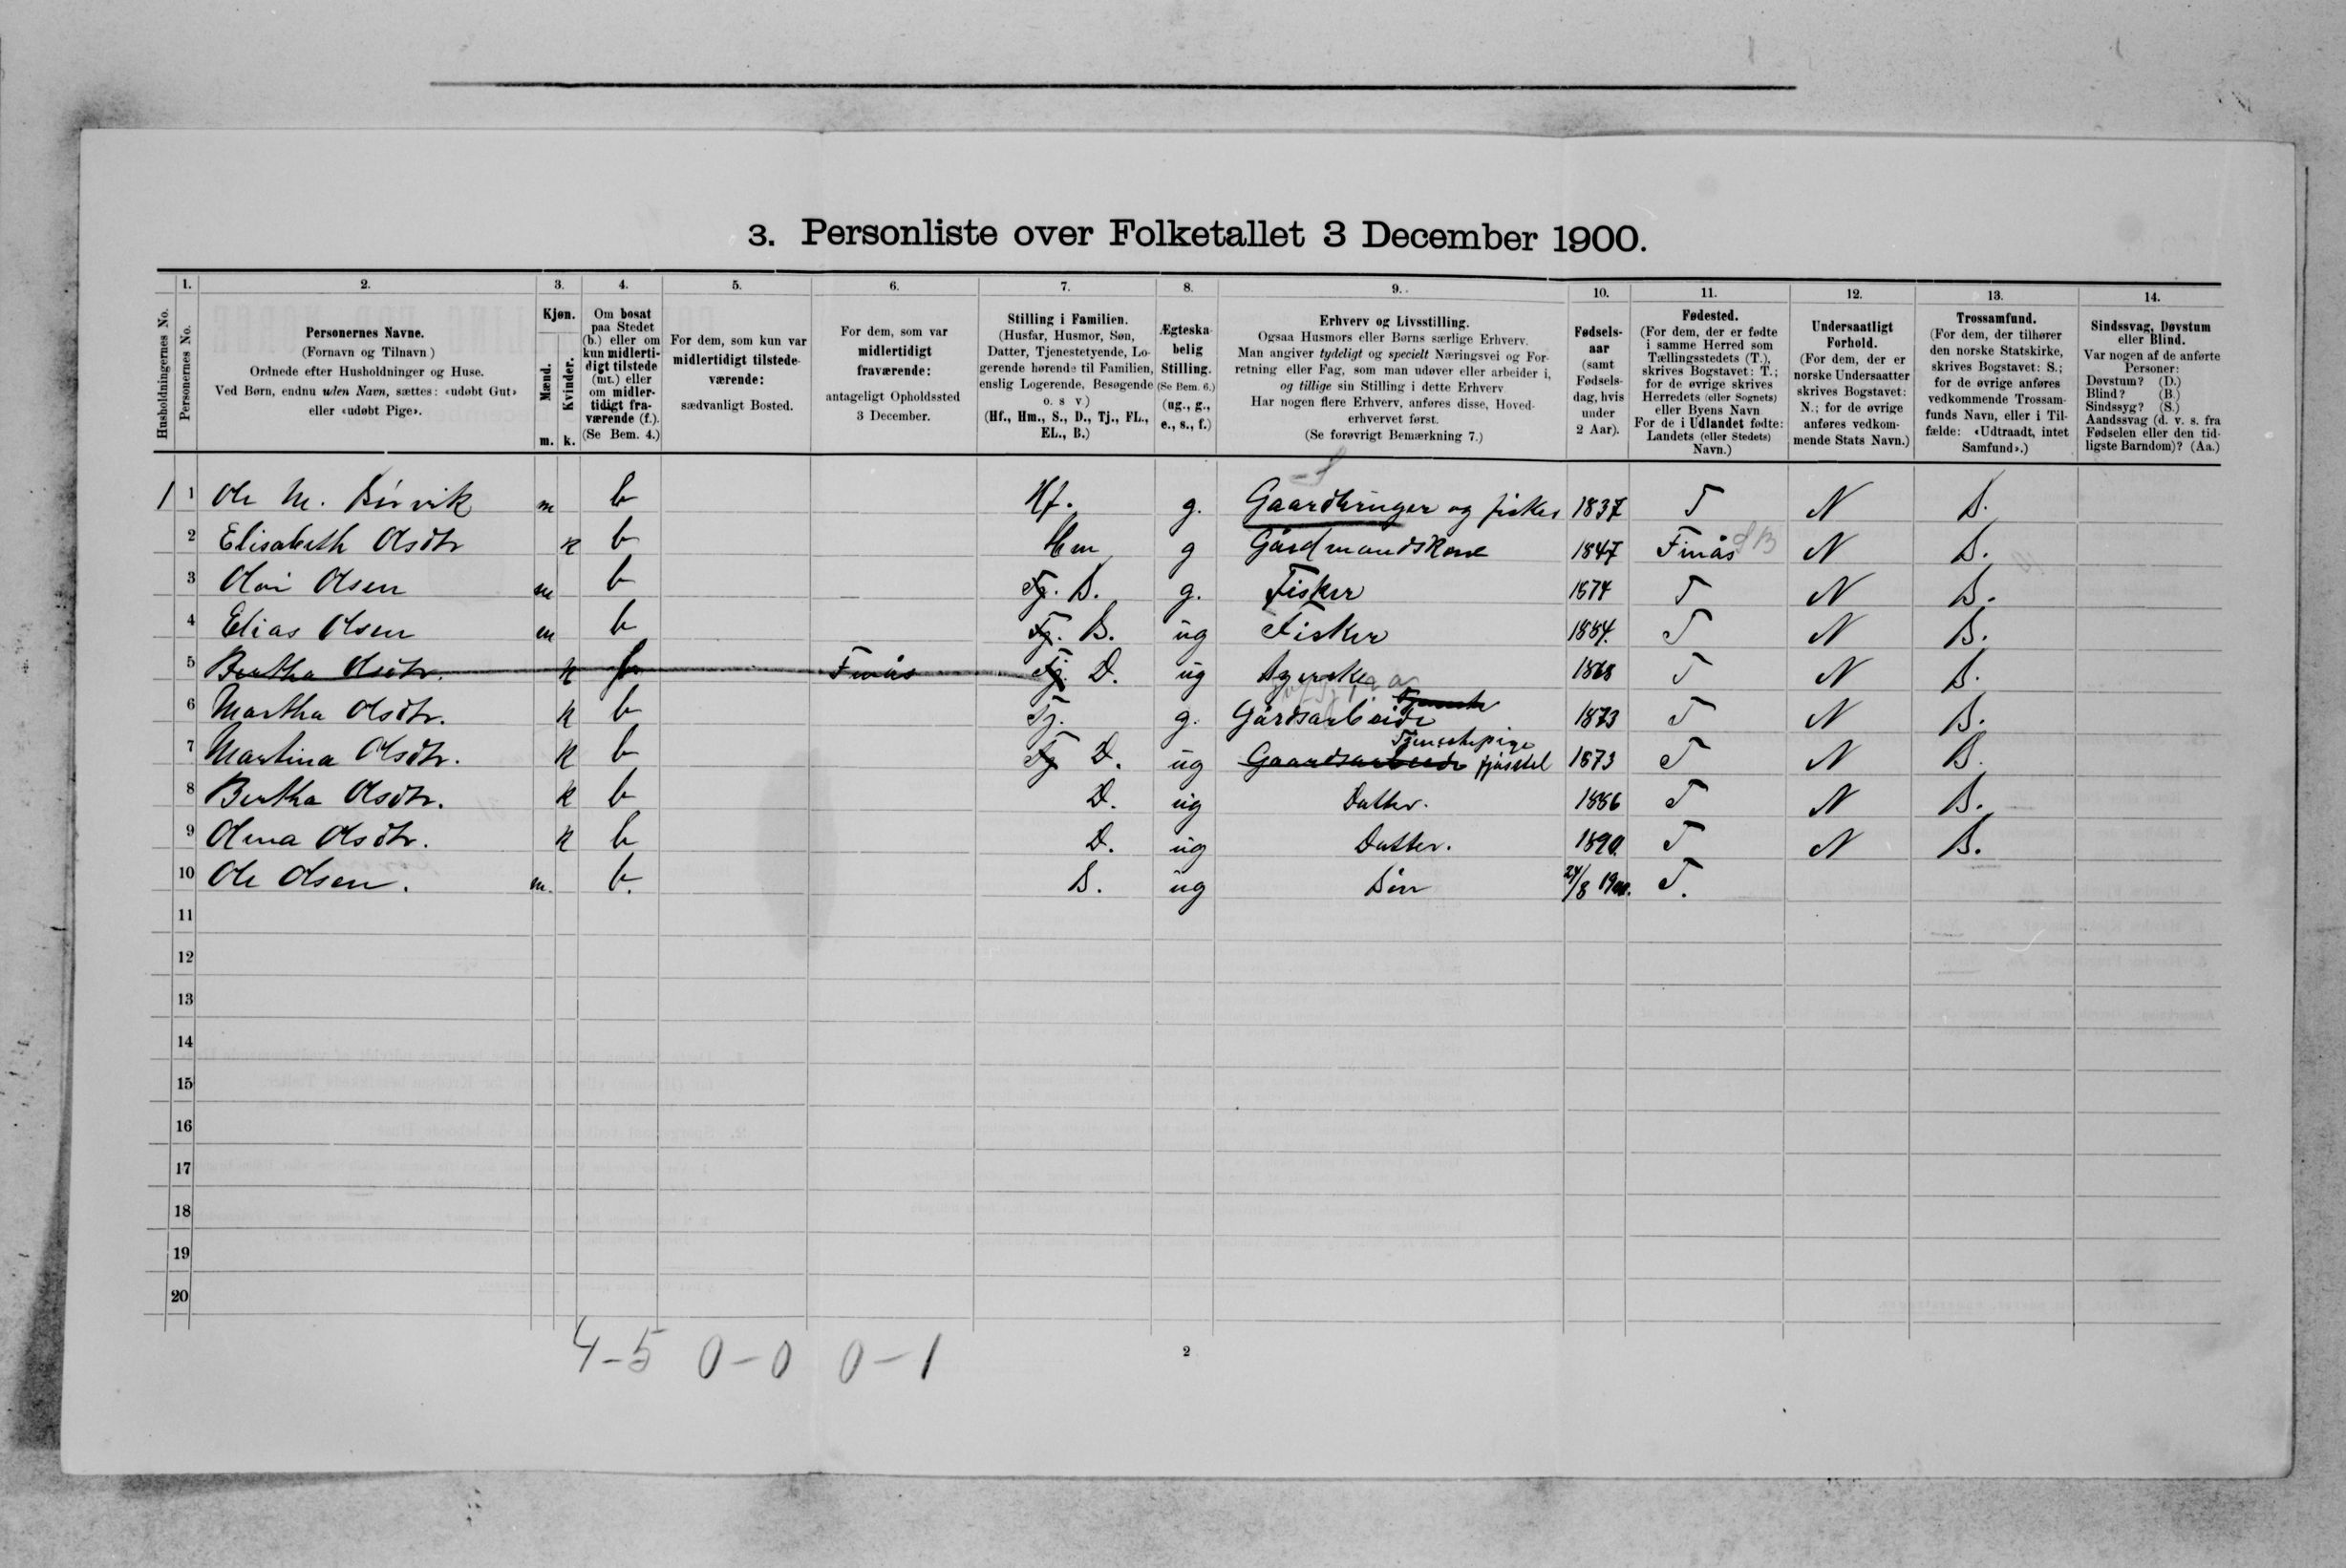 3. Personliste over Folketallet 3 December 1900.
Husholdningernes No.
1.
Personernes No.
2.
Personernes Navne.
(Fornavn og Tilnavn)
Ordnede efter Husholdninger og Huse.
Ved Børn, endnu uden Navn, sættes: «udøbt Gut»
eller «udøbt Pige».
3.
Kjøn.
Mænd.
Kvinder.
m. k.
4.
Om bosat
paa Stedet
(b.) eller om
kun midlerti-
digt tilstede
(mt.) eller
om midler-
tidigt fra-
værende (f.).
(Se Bem. 4.)
5.
For dem, som kun var
midlertidigt tilstede-
værende:
sædvanligt Bosted.
6.
For dem, som var
midlertidigt
fraværende:
antageligt Opholdssted
3 December.
7.
Stilling i Familien.
(Husfar, Husmor, Søn,
Datter, Tjenestetyende, Lo-
gerende hørende til Familien,
enslig Logerende, Besøgende
o. s v.)
(Hf., Hm., S., D., Tj., FL.,
EL., B.)
8.
Ægteska-
belig
Stilling.
(Se Bem. 6.)
(ug., g.,
e., s., f.)
9.
Erhverv og Livsstilling.
Ogsaa Husmors eller Børns særlige Erhverv.
Man angiver tydeligt og specielt Næringsvei og For-
retning eller Fag, som man udøver eller arbeider i,
og tillige sin Stilling i dette Erhverv
Har nogen flere Erhverv, anføres disse, Hoved-
erhvervet først.
(Se forøvrigt Bemærkning 7.)
10.
Fødsels-
aar
(samt
Fødsels-
dag, hvis
under
2 Aar).
11.
Fødested.
(For dem, der er fødte
i samme Herred som
Tællingsstedets (T.),
skrives Bogstavet: T.;
for de øvrige skrives
Herredets (eller Sognets)
eller Byens Navn
For de i Udlandet fødte:
Landets (eller Stedets)
Navn.)
12.
Undersaatligt
Forhold.
(For dem, der er
norske Undersaatter
skrives Bogstavet:
N.; for de øvrige
anføres vedkom-
mende Stats Navn.)
13.
Trossamfund.
(For dem, der tilhører
den norske Statskirke,
skrives Bogstavet: S.;
for de øvrige anføres
vedkommende Trossam-
funds Navn, eller i Til-
fælde: «Udtraadt, intet
Samfund».)
14.
Sindssvag, Døvstum
eller Blind.
Var nogen af de anførte
Personer:
Døvstum? (D.)
Blind? (B.)
Sindssyg? (S.)
Aandssvag (d. v. s. fra
Fødselen eller den tid-
ligste Barndom)? (Aa.)
1 1 Ole M. m b Hf. g. Gaardbruger og fisker 1837 T N S.
2 Elisabeth Olsdtr k b Hm g Gårdmandskone 1847 Finås N S.
3 Olai Olsen m b Tj. S. g. Fisker 1874 T N S.
4 Elias Olsen m b Tj. S. ug Fisker 1884. T N S.
5 Bertha Olsdtr. k Finås Tj. D. ug Syerske 1868 T N S.
6 Martha Olsdtr. k b Tj. g. Gårdsarbeide 1873 T N S.
Tjenestepige
7 Martina Olsdtr. k b Tj D. ug Gaardsarbeide fjøsstel 1873 T N S.
8 Bertha Olsdtr. k b D. ug Datter. 1886 T N S.
9 Olena Olsdtr. k b D. ug Datter. 1890. T N S.
10 Ole Olsen. m. b. S. ug Søn 24/8 1900. T.
11
12
13
14
15
16
17
18
19
20
4-5 0-0 0-1
2